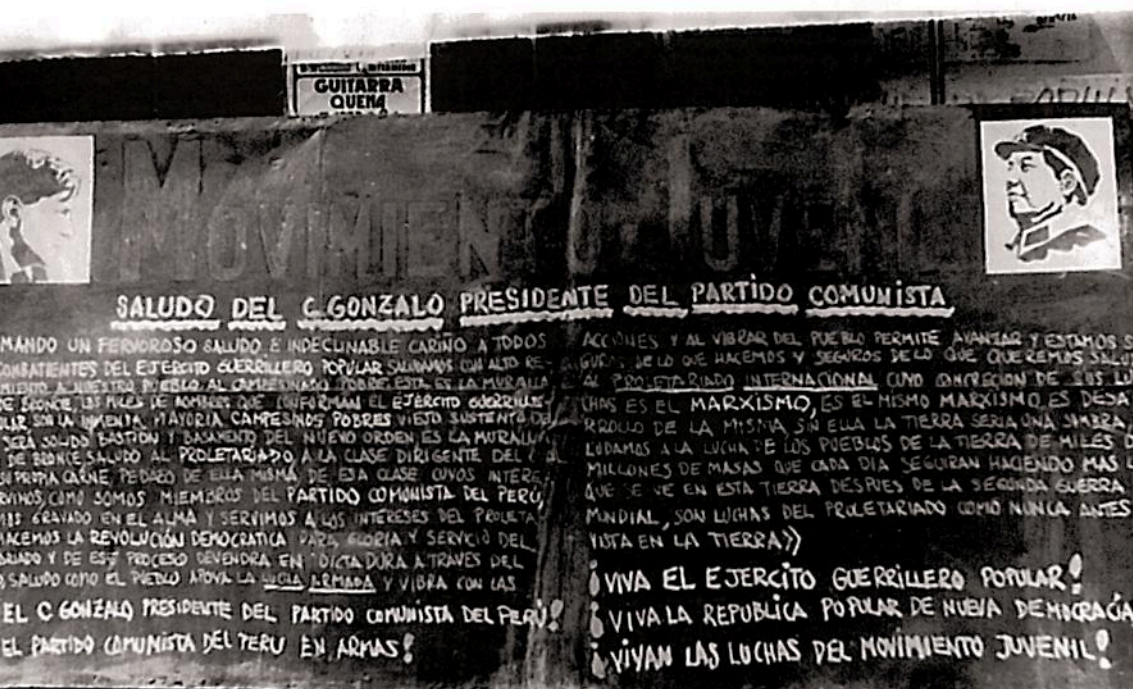 GUITARRA
QUENA
MOVIMIENTO JUVENIL
SALUDO DEL C GONZALO PRESIDENTE DEL PARTIDO COMUNISTA
MANDO UN FERVOROSO SALUDO E INDECLINABLE CARIÑO A TODOS
COMBATIENTES DEL EJERCITO GUERRILLERO POPULAR SALUDAMOS CON ALTO RE-
A NUESTRO PUEBLO AL CAMPESINADO POBRE ESTA ES LA MURALLA
DE BRONCE, LOS MILES DE HOMBRES QUE CONFORMAN EL EJÉRCITO GUERRILLE-
SON LA INMENSA MAYORIA CAMPESINOS POBRES VIEJO SUSTENTO DEL
SERÁ SOLIDO BASTION Y BASAMENTO DEL NUEVO ORDEN ES LA MURALLA
DE BRONCE SALUDO AL PROLETARIADO A LA CLASE DIRIGENTE DEL
PROPIA CARNE, PEDAZO DE ELLA MISMA DE ESA CLASE CUYOS INTERE
COMO SOMOS MIEMBROS DEL PARTIDO COMUNISTA DEL PERÚ,
GRAVADO EN EL ALMA Y SERVIMOS A LOS INTERESES DEL PROLETA
HACEMOS LA REVOLUCIÓN DEMOCRATICA PARA GLORIA Y SERVICIO DEL
Y DE ESE PROCESO DEVENDRA EN DICTADURA A TRAVES DEL
SALUDO COMO EL PUEBLO APOYA LA LUCHA ARMADA Y VIBRA CON LAS
EL C GONZALO PRESIDENTE DEL PARTIDO COMUNISTA DEL PERÚ!
EL PARTIDO COMUNISTA DEL PERU EN ARMAS!
ACCIONES Y AL VIBRAR DEL PUEBLO PERMITE AVANZAR Y ESTAMOS S
GUROS DE LO QUE HACEMOS Y SEGUROS DE LO QUE QUEREMOS SALU
AL PROLETARIADO INTERNACIONAL CUYO CONCRECION DE SUS LU
CHAS ES EL MARXISMO, ES EL MISMO MARXISMO, ES DESA
RROLLO DE LA MISMA, SIN ELLA LA TIERRA SERIA UNA SOMBRA
LUDAMOS A LA LUCHA DE LOS PUEBLOS DE LA TIERRA DE MILES D
MILLONES DE MASAS QUE CADA DIA SEGUIRAN HACIENDO MAS L
QUE SE VE EN ESTA TIERRA DESPUES DE LA SEGUNDA GUERRA
MUNDIAL, SON LUCHAS DEL PROLETARIADO COMO NUNCA ANTES
VISTA EN LA TIERRA»
¡VIVA EL EJERCITO GUERRILLERO POPULAR!
¡VIVA LA REPUBLICA POPULAR DE NUEVA DEMOCRACIA
¡VIVAN LAS LUCHAS DEL MOVIMIENTO JUVENIL!